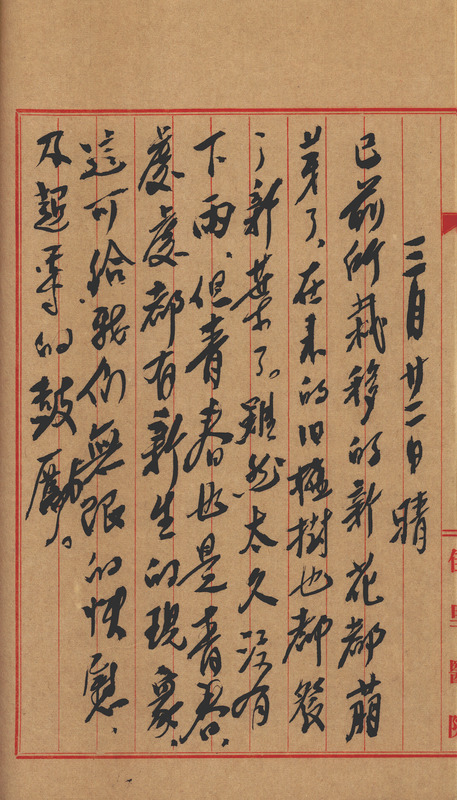 佳里醫院
三月廿二日 晴
已前所栽移的新花都萌
芽了、在来的旧植樹也都發
了新葉了。雖然太久沒有
下雨、但青春也是青春、
處處都有新生的現象、
這可給我們無限的快慰、
及超等的鼓勵。